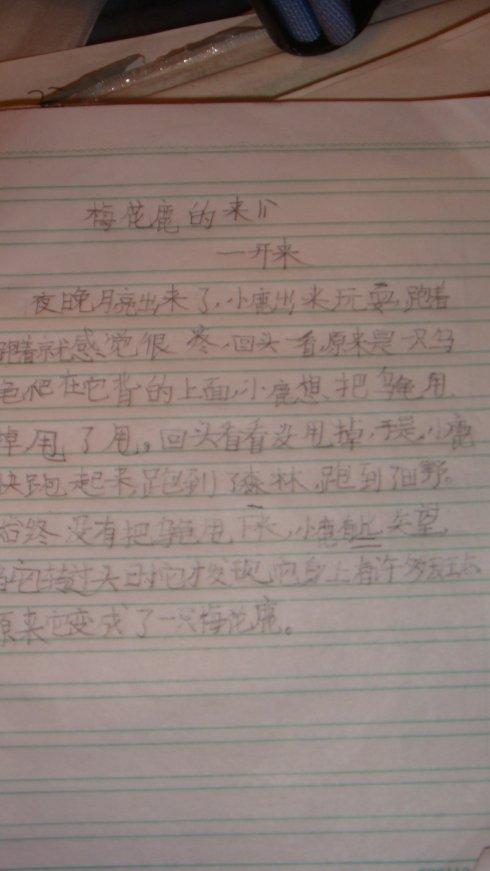 梅花鹿的来
一开来
夜晚月亮出来了,小鹿出来玩耍,跑着
跑着就感觉很疼,回头一看原来是一只乌
龟爬在它背的上面,小鹿想把乌龟甩
掉,甩了甩。回头看看没甩掉,于是,小鹿
快跑起来,跑到了森林,跑到田野。
始终没有把乌龟甩下来,小鹿有点失望,
当它转过头时它才发现它身上有许多
原来它变成了一只梅花鹿。